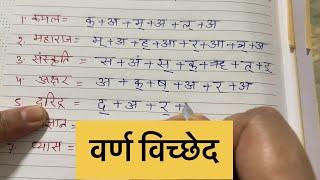 1. कमल= क्+अ+म्+अ+ल्+अ
2. महाराज= म्+अ+ह्+आ+र्+आ+ज्+अ
3. संस्कृति = स+अं+स्+क्+ऋ+त्+इ
4. अक्षर = अ+क्+ष्+अ+र+अ
5. दरिद्र = द्+अ+र्+
ज्ञान =
7. प्यास =
वर्ण विच्छेद